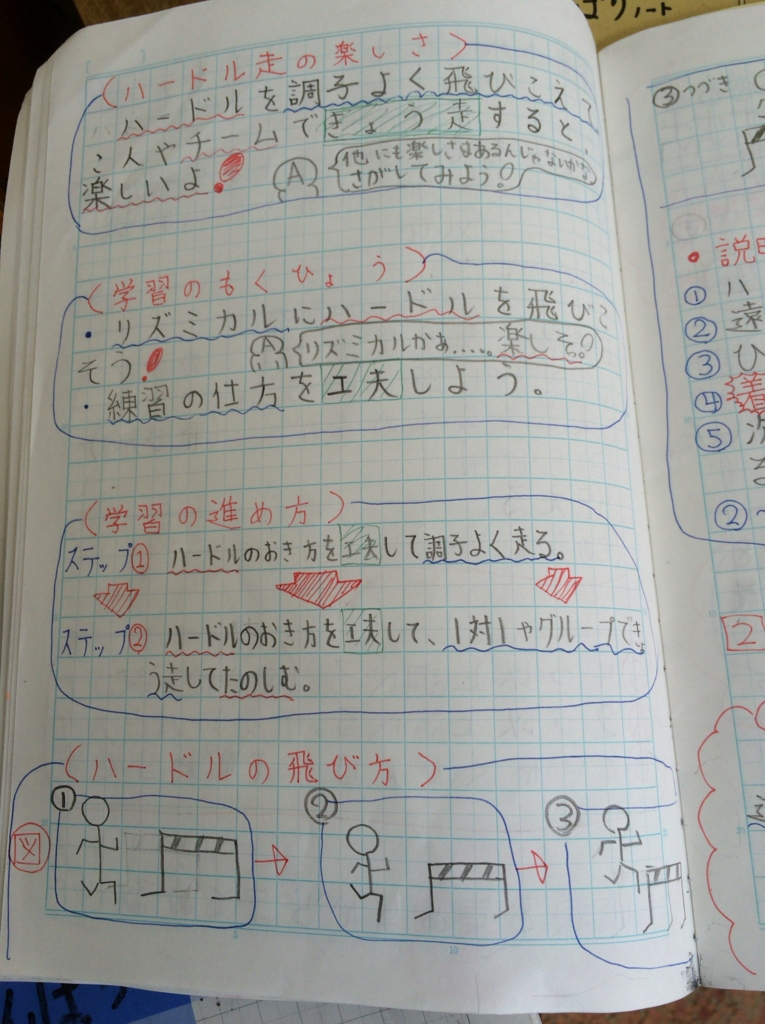 ゴリノート
(ハードル走の楽しさ)
ハードルを調子よく飛びこえて
こ人やチームできょう走すると、
楽しいよ!
A
他にも楽しさはあるんじゃないかな
さがしてみよう?
(学習のもくひょう)
・リズミカルにハードルを飛びこ
そう!
A
リズミカルかぁ……。楽しそ?
・練習の仕方を工夫しよう。
(学習の進め方)
ステップ① ハードルのおき方を工夫して調子よく走る。
ステップ② ハードルのおき方を工夫して、1対1やグループでき
ょう走してたのしむ。
(ハードルの飛び方)
図
①
②
③
③つづき
・説明
① ハ
② 遠
③ ひ
④ 着
⑤ 次
②
2